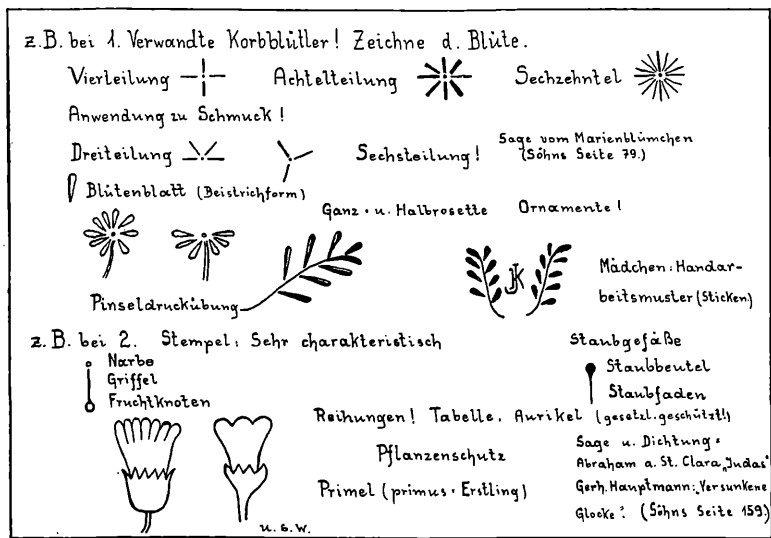 z.B. bei 1. Verwandte Korbblütler! Zeichne d. Blüte.
Vierteilung Achtelteilung Sechzehntel
Anwendung zu Schmuck!
Dreiteilung Sechsteilung! Sage vom Marienblümchen
(Söhns Seite 79.)
Blütenblatt (Beistrichform)
Ganz- u. Halbrosette Ornamente!
JK
Mädchen: Handar-
beitsmuster (Sticken)
Pinseldruckübung
z.B. bei 2. Stempel: Sehr charakteristisch Staubgefäße
Narbe Staubbeutel
Griffel Staubfaden
Fruchtknoten
Reihungen! Tabelle. Aurikel (gesetzl. geschützt!)
Pflanzenschutz
Primel (primus = Erstling)
Sage u. Dichtung:
Abraham a. St. Clara „Judas"
Gerh. Hauptmann: „Versunkene
Glocke". (Söhns Seite 159.)
u. s. w.